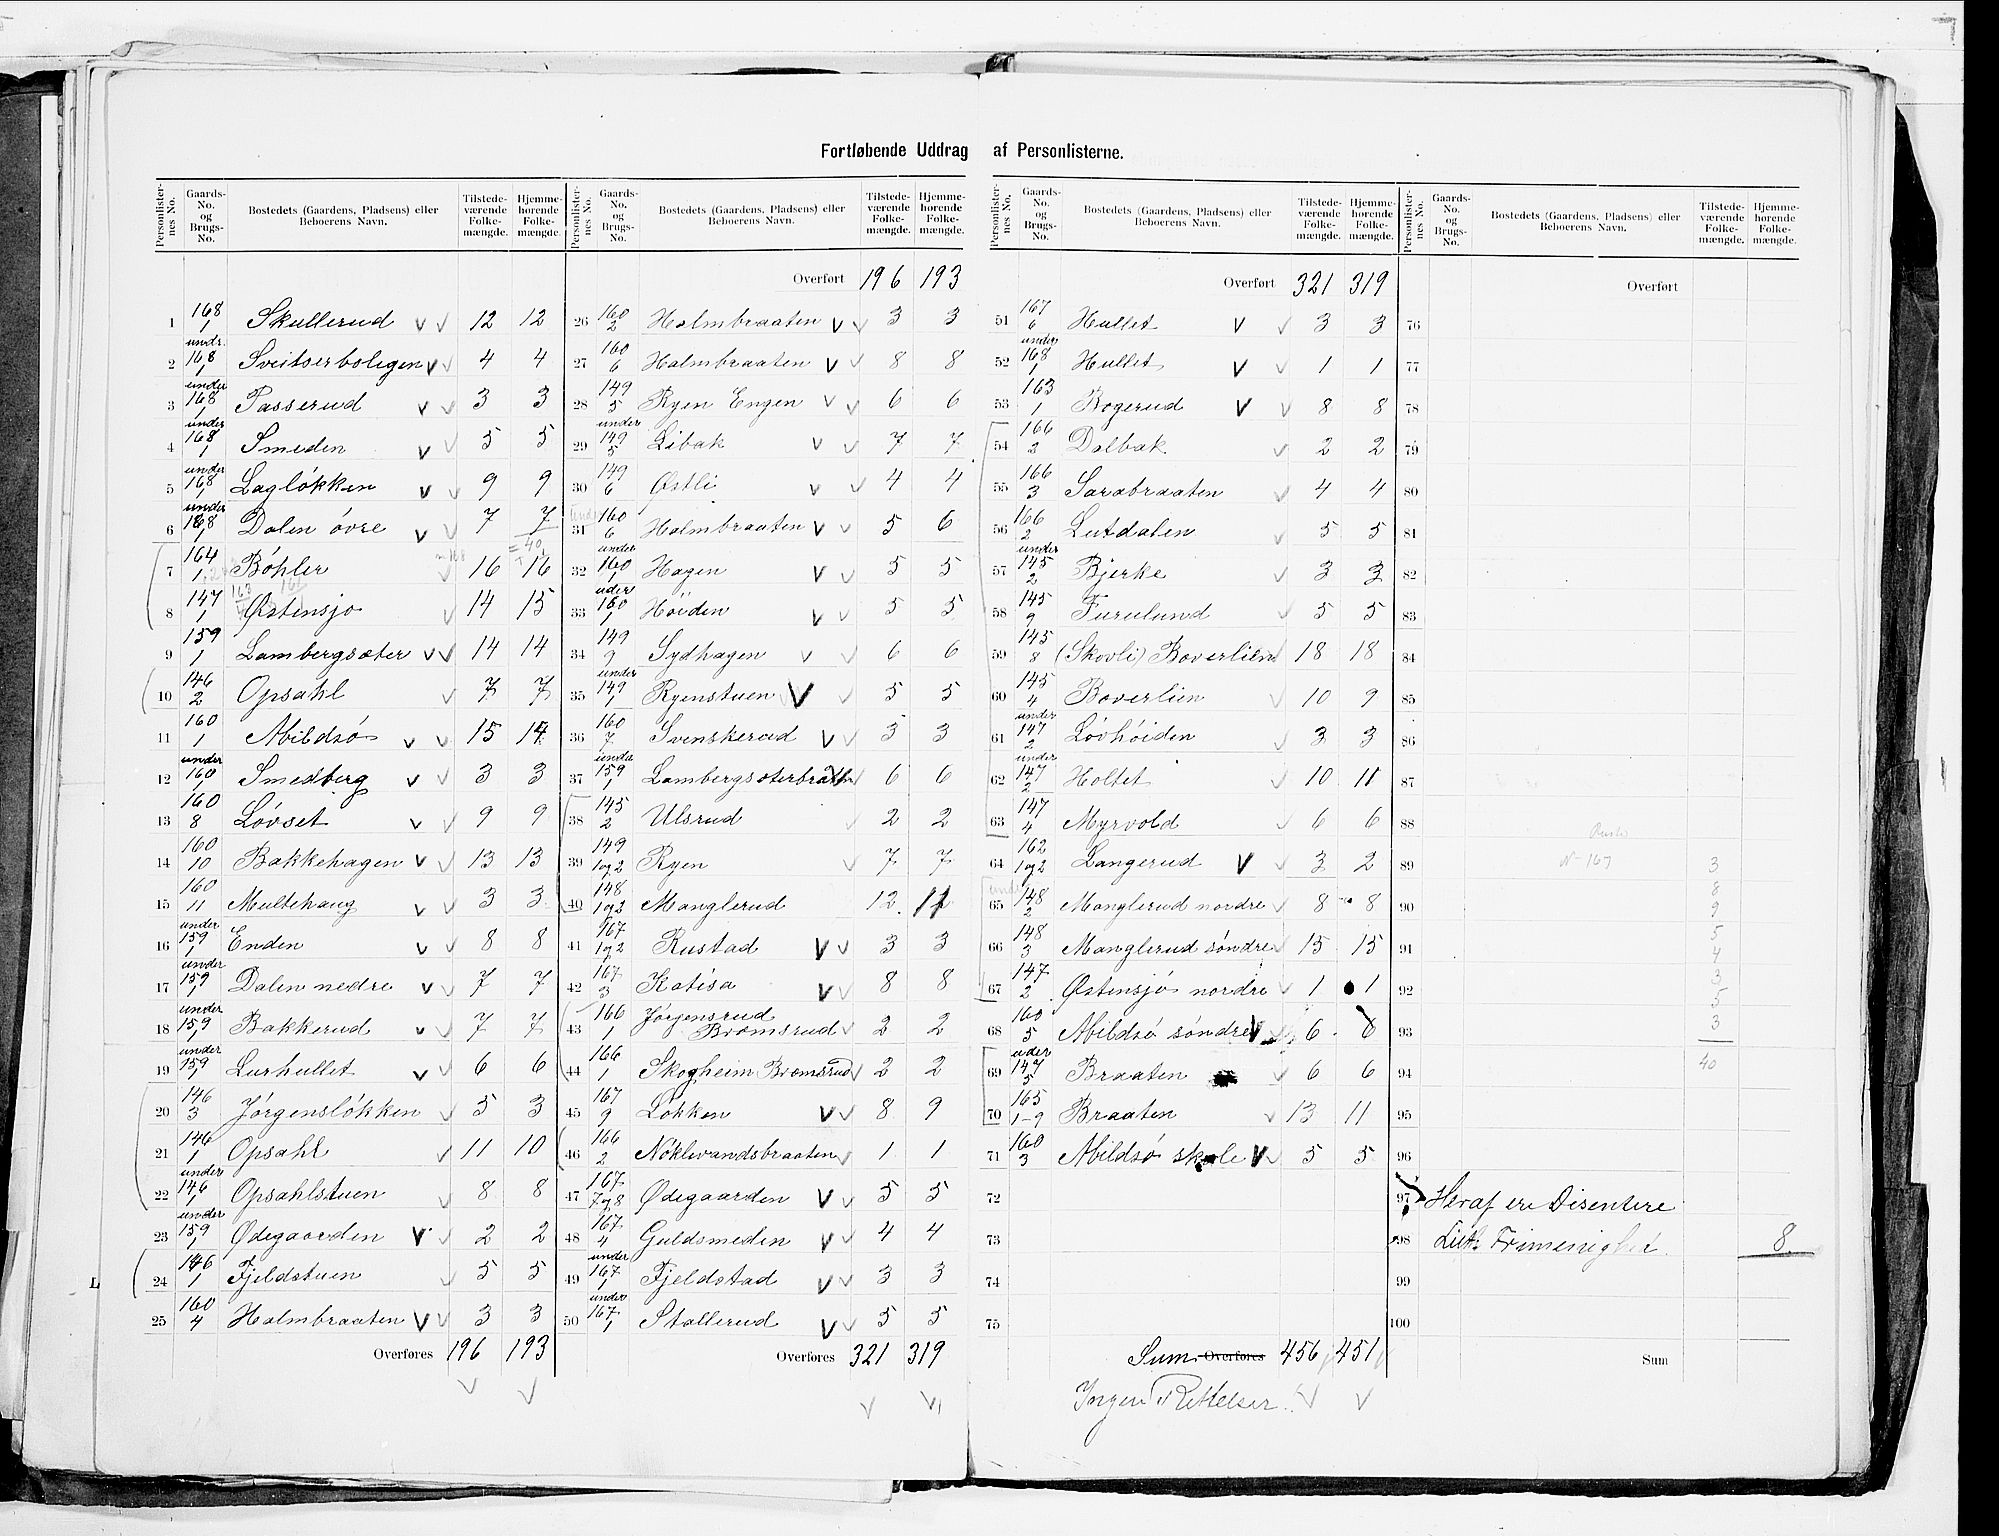 Fortløbende Uddrag af Personlisterne.
Personlister-nes No. Gaards-No. og Brugs-No. Bostedets (Gaardens, Pladsens) eller Beboerens Navn. Tilstede-værende Folke-mængde. Hjemme-hørende Folke-mængde.
1 168/1 Skullerud 12 12
2 undr. 168/1 Sveitserboligen 4 4
3 under 168/1 Passerud 3 3
4 under 168/1 Smeden 5 5
5 under 168/1 Lagløkken 9 9
6 under 168/1 Dalen øvre 7 7
7 164/1 Bøhler 16 16
8 147/1 Østensjo 14 15
9 159/1 Lambergsæter 14 14
10 146/2 Opsahl 7 7
11 160/1 Abildsø 15 14
12 under 160/1 Smedberg 3 3
13 160/8 Løvset 9 9
14 160/10 Bakkehagen 13 13
15 160/11 Multehaug 3 3
16 under 159/1 Enden 8 8
17 under 159/1 Dalen nedre 7 7
18 under 159/1 Bakkerud 7 7
19 under 159/1 Lurhullet 6 6
20 146/3 Jørgensløkken 5 3
21 146/1 Opsahl 11 10
22 under 146/1 Opsahlstuen 8 8
23 under 159/1 Ødegaarden 2 2
24 146/1 Fjeldstuen 5 5
25 160/4 Holmbraaten 3 3
Overføres 196 193
Personlister-nes No. Gaards-No. og Brugs-No. Bostedets (Gaardens, Pladsens) eller Beboerens Navn. Tilstede-værende Folke-mængde. Hjemme-hørende Folke-mængde.
Overført 196 193
26 160/2 Holmbraaten 3 3
27 160/6 Holmbraaten 8 8
28 149/5 Ryen Engen 6 6
29 under 149/5 Libak 7 7
30 149/6 Østli 4 4
31 under 160/6 Holmbraaten 5 6
32 under 160/1 Hagen 5 5
33 uder 160/1 Høiden 5 5
34 149/9 Sydhagen 6 6
35 under 149/1 Ryenstuen 5 5
36 160/7 Svenskerud 3 3
37 under 159/1 Lambergsæterbraaten 6 6
38 145/2 Ulsrud 2 2
39 149/1og2 Ryen 7 7
40 148/1og2 Manglerud 12 11
41 167/1og2 Rustad 3 3
42 167/3 Katisa 8 8
43 166/1 Jørgensrud Bromsrud 2 2
44 166/1 Skogheim Bromsrud 2 2
45 167/9 Løkken 8 9
46 166/2 Nøklevandsbraaten 1 1
47 167/7og8 Ødegaarden 5 5
48 167/4 Guldsmeden 4 4
49 under 167/1 Fjeldstad 3 3
50 under 167/1 Stallerud 5 5
Overføres 321 319
Personlister-nes No. Gaards-No. og Brugs-No. Bostedets (Gaardens, Pladsens) eller Beboerens Navn. Tilstede-værende Folke-mængde. Hjemme-hørende Folke-mængde.
Overført 321 319
51 167/6 Hullet 3 3
52 under 168/1 Hullet 1 1
53 163/1 Bogerud 8 8
54 166/2 Dalbak 2 2
55 166/3 Sarabraaten 4 4
56 166/2 Lutdalen 5 5
57 under 145/2 Bjerke 3 3
58 145/9 Furulund 5 5
59 145/8 (Skovli) Boverlien 18 18
60 145/4 Boverlien 10 9
61 under 147/2 Løvhøiden 3 3
62 under 147/2 Holtet 10 11
63 147/4 Myrvold 6 6
64 162/1og2 Langerud 3 2
65 under 148/2 Manglerud nordre 8 8
66 148/3 Manglerud søndre 15 15
67 147/2 Østensjø nordre 1 1
68 160/5 Abildsø søndre 6 6
69 uder 147/5 Braaten 6 6
70 165/1-9 Braaten 13 11
71 160/3 Abildsø skole 5 5
72
73
74
75
Sum Overføres 456 451
Ingen Rettelser
Personlister-nes No. Gaards-No. og Brugs-No. Bostedets (Gaardens, Pladsens) eller Beboerens Navn. Tilstede-værende Folke-mængde. Hjemme-hørende Folke-mængde.
Overført
76
77
78
79
80
81
82
83
84
85
86
87
88
89 N-167 3
90 8 9
91 5 4
92 3 5
93 3
94 40
95
96
97 Heraf ere Disentere
98 Luth. Frimenighed. 8
99
100
Sum